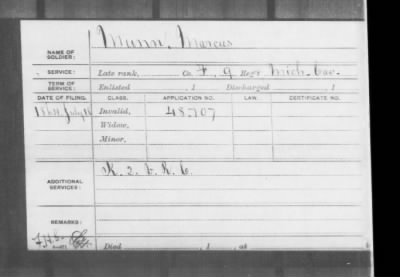 NAME OF SOLDIER: Munn, Marcus
SERVICE: Late rank, Co. F, 9 Reg't Mich. Cav.
TERM OF SERVICE: Enlisted , 1 Discharged , 1
DATE OF FILING. CLASS. APPLICATION NO. LAW. CERTIFICATE NO.
July Invalid, 48.707
Widow,
Minor,
ADDITIONAL SERVICES: K. 2. V. R. C.
REMARKS:
Died , 1 , at